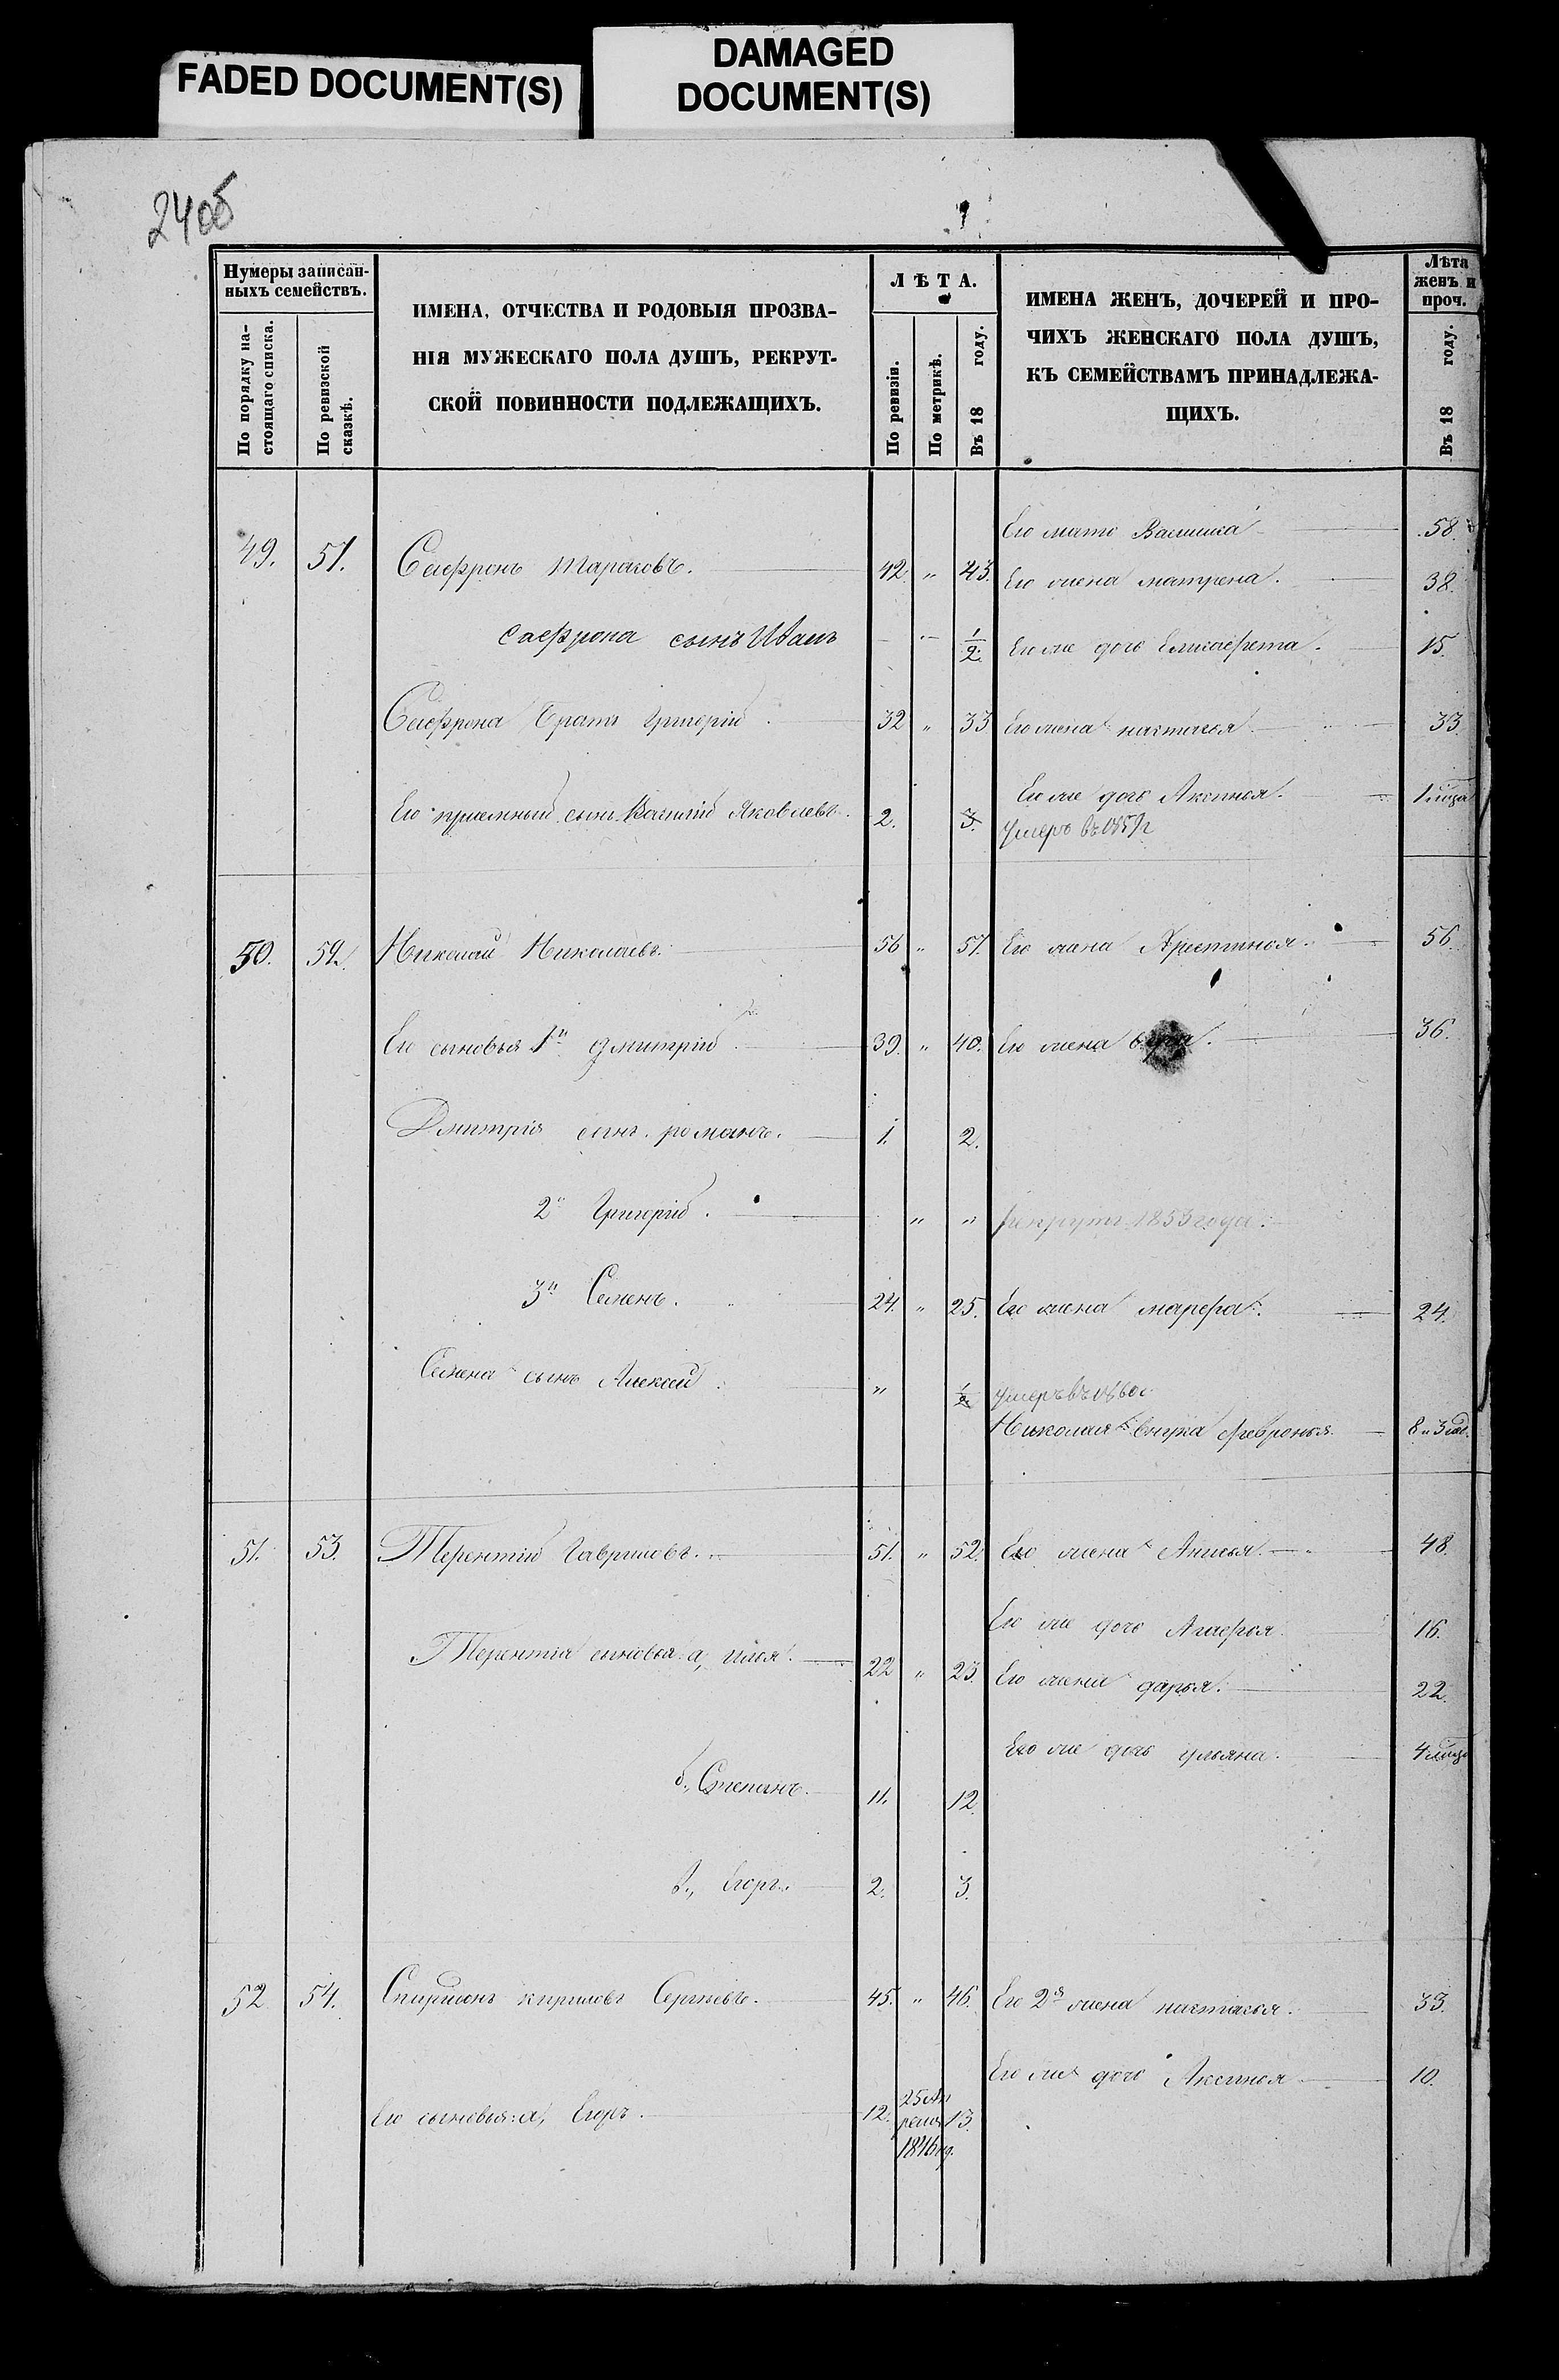 FADED DOCUMENT(S)
DAMAGED
DOCUMENT(S)
2405
Нумеры записан-
ныхъ семействъ.
По порядку на-
стоящаго списка.
По ревизской
сказкѣ.
ИМЕНА, ОТЧЕСТВА И РОДОВЫЯ ПРОЗВА-
НІЯ МУЖЕСКАГО ПОЛА ДУШЪ, РЕКРУТ-
СКОЙ ПОВИННОСТИ ПОДЛЕЖАЩИХЪ.
ЛѢТА.
По ревизіи.
По метрикѣ.
Въ 18 году.
ИМЕНА ЖЕНЪ, ДОЧЕРЕЙ И ПРО-
ЧИХЪ ЖЕНСКАГО ПОЛА ДУШЪ,
КЪ СЕМЕЙСТВАМЪ ПРИНАДЛЕЖА-
ЩИХЪ.
Лѣта
женъ и
проч.
Въ 18 году.
Его мать 58.
49. 51. Сафронъ Тарасовъ. 42. " 43. Его жена матрена. 38.
Сафрона сынъ Иванъ 1/2. Его же дочь Елисавета. 15.
Сафрона братъ Григорій 32 " 33 Его жена настасья 33
Его же дочь Аксинья. 1 мѣся
Его приемный сынъ Василій Яковлевъ. 2. 3. умеръ въ 1859 г
50. 52. Николай Николаевъ. 56 " 57. Его жена Христинья. 56.
Его сыновья 1й дмитрій 39. " 40. Его жена 36.
Дмитрія сынъ романъ. 1. 2.
2й Григорій. " " рекрутъ 1853 года.
3й Семенъ. 24. " 25. Его жена марфа. 24.
Семена сынъ Алексѣй. " 1/2 умеръ въ 1860 г
Николая внука Февронья 8 и 3 мѣс.
51. 53. Терентій Гавриловъ. 51. " 52. Его жена Анисья. 48.
Его же дочь Агафья 16.
Терентія сыновья: а, илья. 22 " 23. Его жена дарья. 22.
Его же дочь ульяна. 4 мѣся
б., Степанъ. 11. 12.
в., Егоръ. 2. 3.
52 54. Спиридонъ кириловъ Сергѣевъ. 45. " 46. Его 2я жена настасья. 33.
Его же дочь Аксинья 10.
Его сыновья: а, Егоръ. 12. 25 Ап
реля 13.
1846 год.